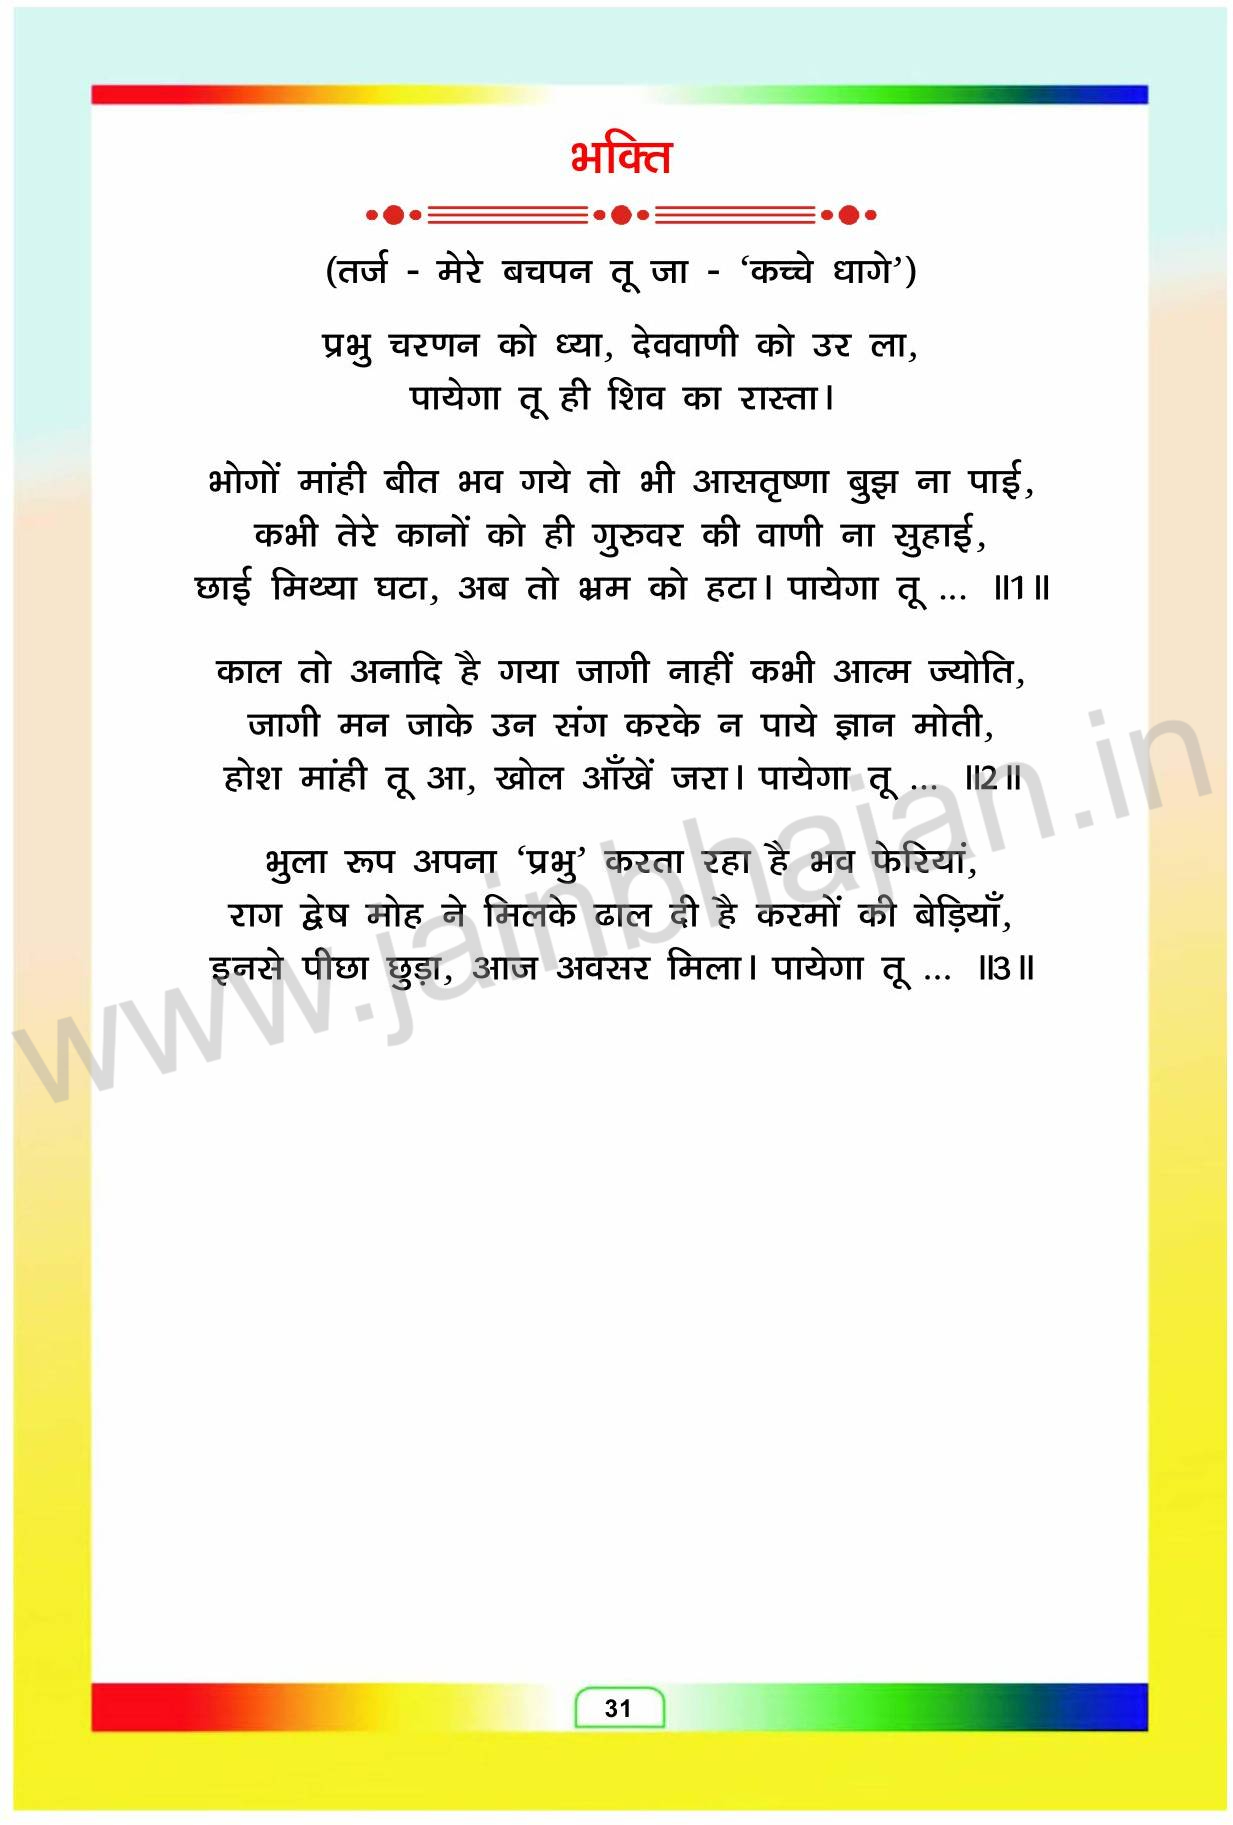 भक्ति
(तर्ज - मेरे बचपन तू जा - ‘कच्चे धागे’)
प्रभु चरणन को ध्या, देववाणी को उर ला,
पायेगा तू ही शिव का रास्ता।
भोगों मांही बीत भव गये तो भी आसतृष्णा बुझ ना पाई,
कभी तेरे कानों को ही गुरुवर की वाणी ना सुहाई,
छाई मिथ्या घटा, अब तो भ्रम को हटा। पायेगा तू ... ॥1॥
काल तो अनादि है गया जागी नाहीं कभी आत्म ज्योति,
जागी मन जाके उन संग करके न पाये ज्ञान मोती,
होश मांही तू आ, खोल आँखें जरा। पायेगा तू ... ॥2॥
भुला रूप अपना ‘प्रभु’ करता रहा है भव फेरियां,
राग द्वेष मोह ने मिलके ढाल दी है करमों की बेड़ियाँ,
इनसे पीछा छुड़ा, आज अवसर मिला। पायेगा तू ... ॥3॥
www.jainbhajan.in
31